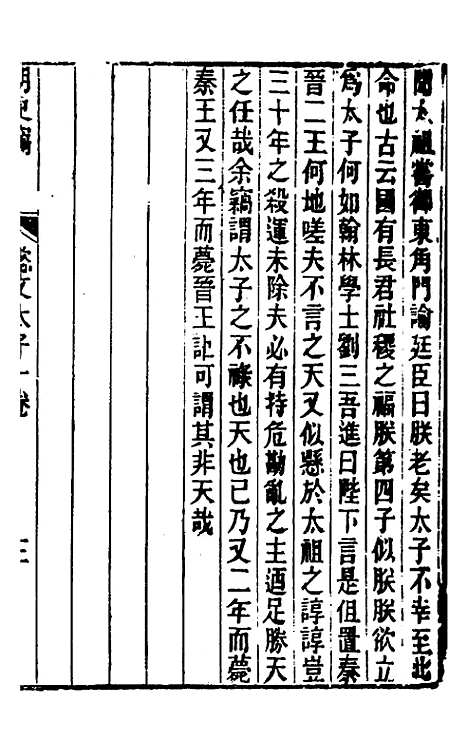 聞太祖嘗御東角門諭廷臣曰朕老矣太子不幸至此
命也古云國有長君社稷之福朕第四子似朕朕欲立
爲太子何如翰林學士劉三吾進曰陛下言是但置秦
晉二王何地嗟夫不言之天又似懸於太祖之諄諄豈
三十年之殺運未除夫必有持危勘亂之主迺足勝天
之任哉余竊謂太子之不祿也天也已乃又二年而薨
秦王又三年而薨晉王詎可謂其非天哉
明史竊
懿文太子一卷
三